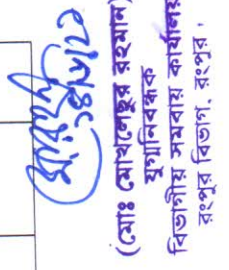 (মোঃ মোখলেছুর রহমান)
যুগ্মনিবন্ধক
বিভাগীয় সমবায় কার্যালয়
রংপুর বিভাগ, রংপুর।